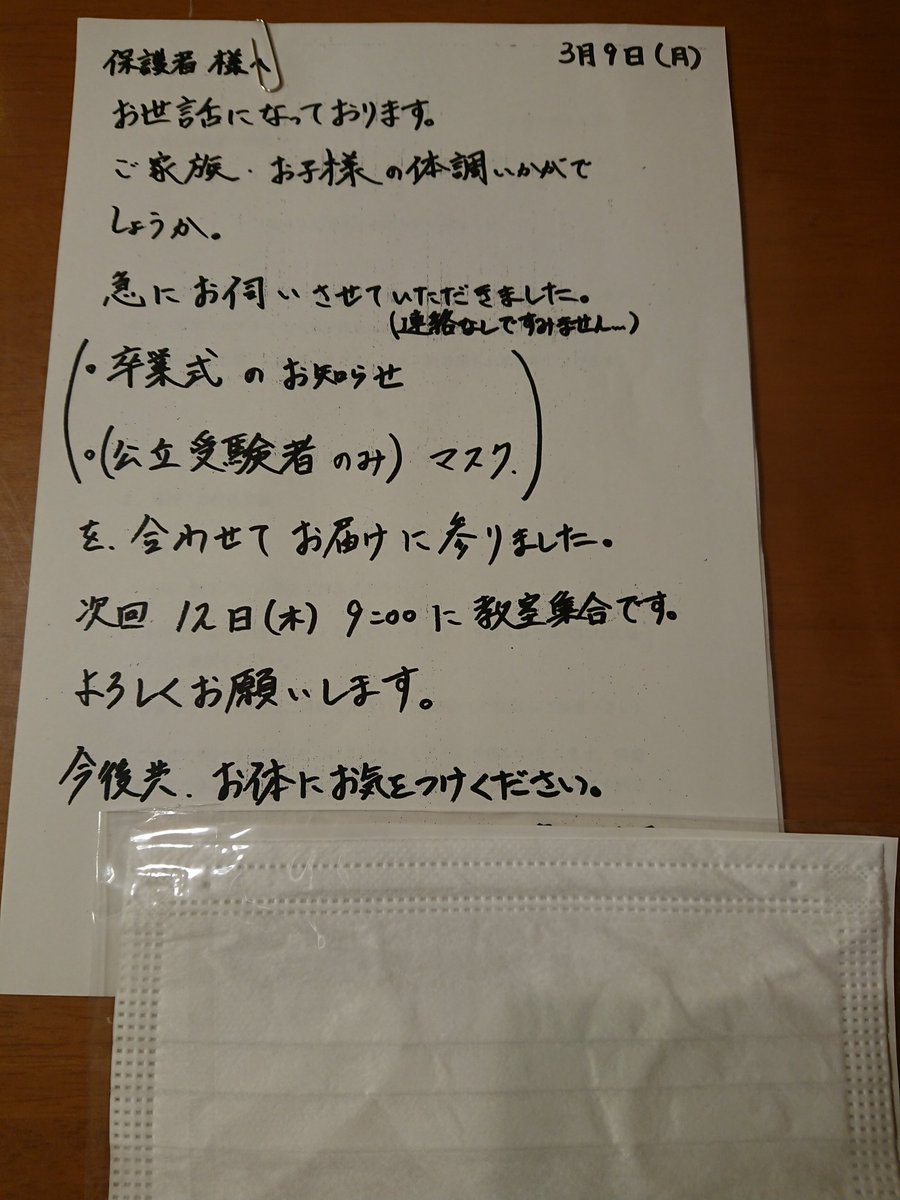 保護者様へ 3月9日(月)
お世話になっております。
ご家族・お子様の体調いかがで
しょうか。
急にお伺いさせていただきました。
(連絡なしですみません…)
・卒業式のお知らせ
・(公立受験者のみ) マスク.
を、合わせてお届けに参りました。
次回 12日(木) 9:00に教室集合です。
よろしくお願いします。
今後共、お体にお気をつけください。